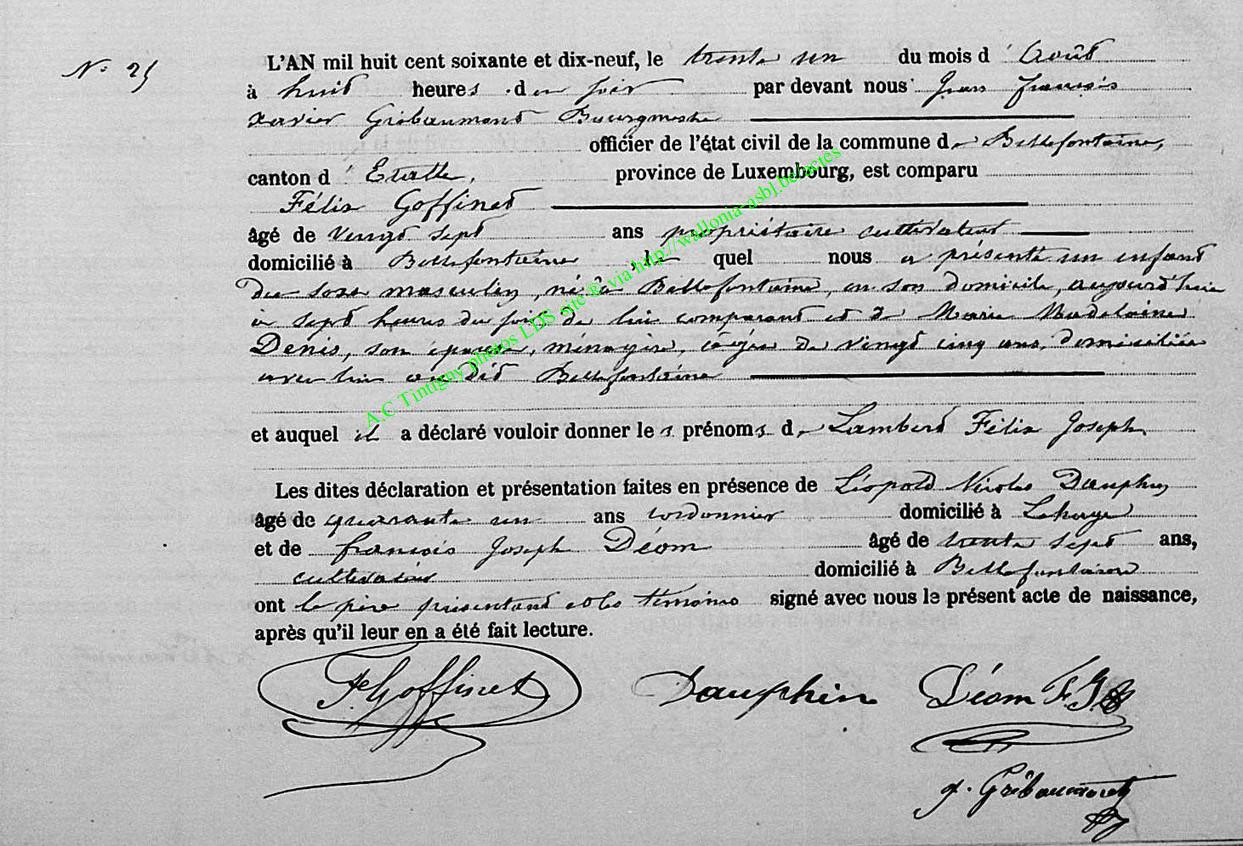 N° 25
L'AN mil huit cent soixante et dix-neuf, le trente un du mois d'Août
à huit heures du soir par devant nous Jean François
Xavier Gribaumont Bourgmestre
officier de l'état civil de la commune de Bellefontaine,
canton d'Etalle, province de Luxembourg, est comparu
Félix Goffinet
âgé de vingt sept ans propriétaire cultivateur
domicilié à Bellefontaine, le quel nous a présenté un enfant
du sexe masculin, né à Bellefontaine, en son domicile, aujourd'hui
à sept heures du soir de lui comparant et de Marie Madelaine
Denis, son épouse, ménagère, âgée de vingt cinq ans, domiciliée
avec lui au dit Bellefontaine
et auquel il a déclaré vouloir donner les prénoms de Lambert Félix Joseph
Les dites déclaration et présentation faites en présence de Léopold Nicolas Dauphin
âgé de quarante un ans cordonnier domicilié à Lahage
et de François Joseph Déom âgé de trente sept ans,
cultivateur domicilié à Bellefontaine
ont le père présentant et les témoins signé avec nous le présent acte de naissance,
après qu'il leur en a été fait lecture.
F. Goffinet Dauphin Déom F. J.
Gribaumont
A.C Tintigny photos LDS site ® via http://wallonia-asbl.be/actes